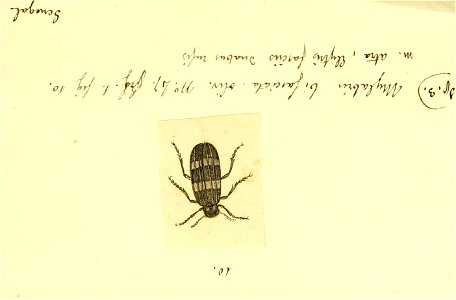 10.
Sp. 3. Mylabris bifasciata oliv. N° 47 fig. 10.
m. atra, Elytris fasciis duabus rufis
Senegal